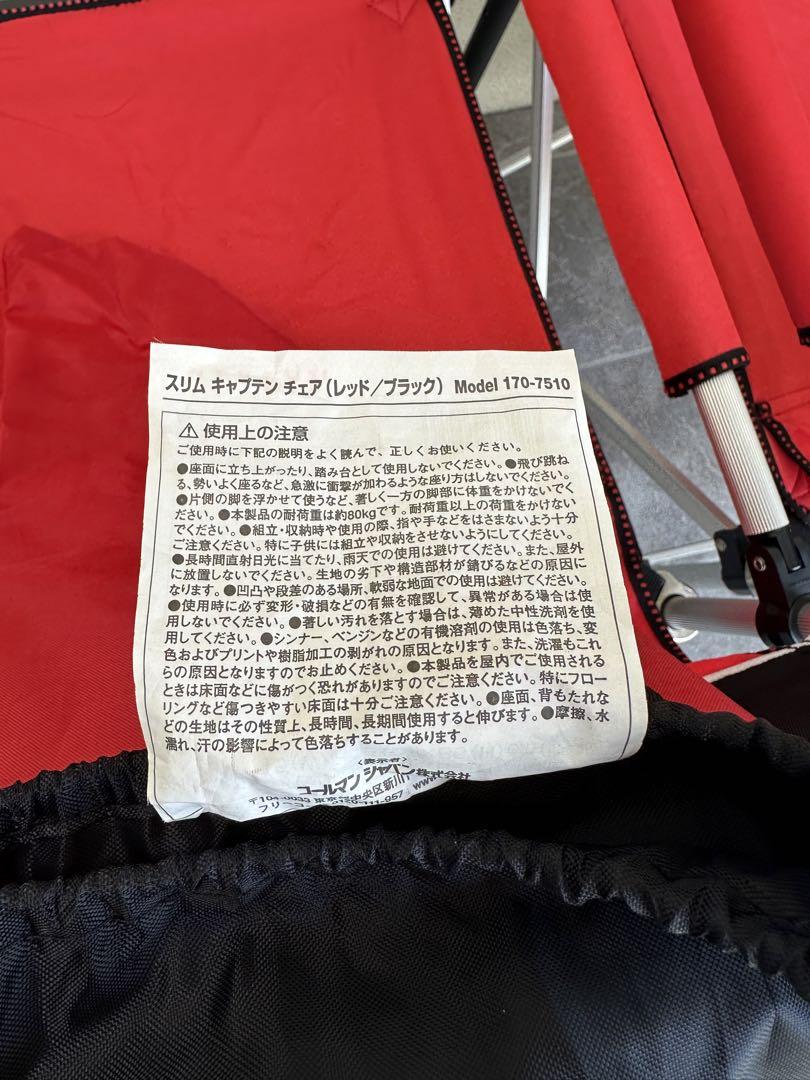 スリム キャプテン チェア（レッド／ブラック） Model 170-7510
⚠ 使用上の注意
ご使用時に下記の説明をよく読んで、正しくお使いください。
●座面に立ち上がったり、踏み台として使用しないでください。●飛び跳ね
る、勢いよく座るなど、急激に衝撃が加わるような座り方はしないでください。
●片側の脚を浮かせて使うなど、著しく一方の脚部に体重をかけないでく
ださい。●本製品の耐荷重は約80kgです。耐荷重以上の荷重をかけない
でください。●組立・収納時や使用の際、指や手などをはさまないよう十分
ご注意ください。特に子供には組立や収納をさせないようにしてください。
●長時間直射日光に当てたり、雨天での使用は避けてください。また、屋外
に放置しないでください。生地の劣下や構造部材が錆びるなどの原因に
なります。●凹凸や段差のある場所、軟弱な地面での使用は避けてください。
●使用時に必ず変形・破損などの有無を確認して、異常がある場合は使
用しないでください。●著しい汚れを落とす場合は、薄めた中性洗剤を使
用してください。●シンナー、ベンジンなどの有機溶剤の使用は色落ち、変
色およびプリントや樹脂加工の剥がれの原因となります。また、洗濯もこれ
らの原因となりますのでお止めください。●本製品を屋内でご使用される
ときは床面などに傷がつく恐れがありますのでご注意ください。特にフロー
リングなど傷つきやすい床面は十分ご注意ください。●座面、背もたれな
どの生地はその性質上、長時間、長期間使用すると伸びます。●摩擦、水
濡れ、汗の影響によって色落ちすることがあります。
〈表示者〉
コールマン ジャパン株式会社
〒104-0033 東京都中央区新川
フリーコール 0120-111-957 www